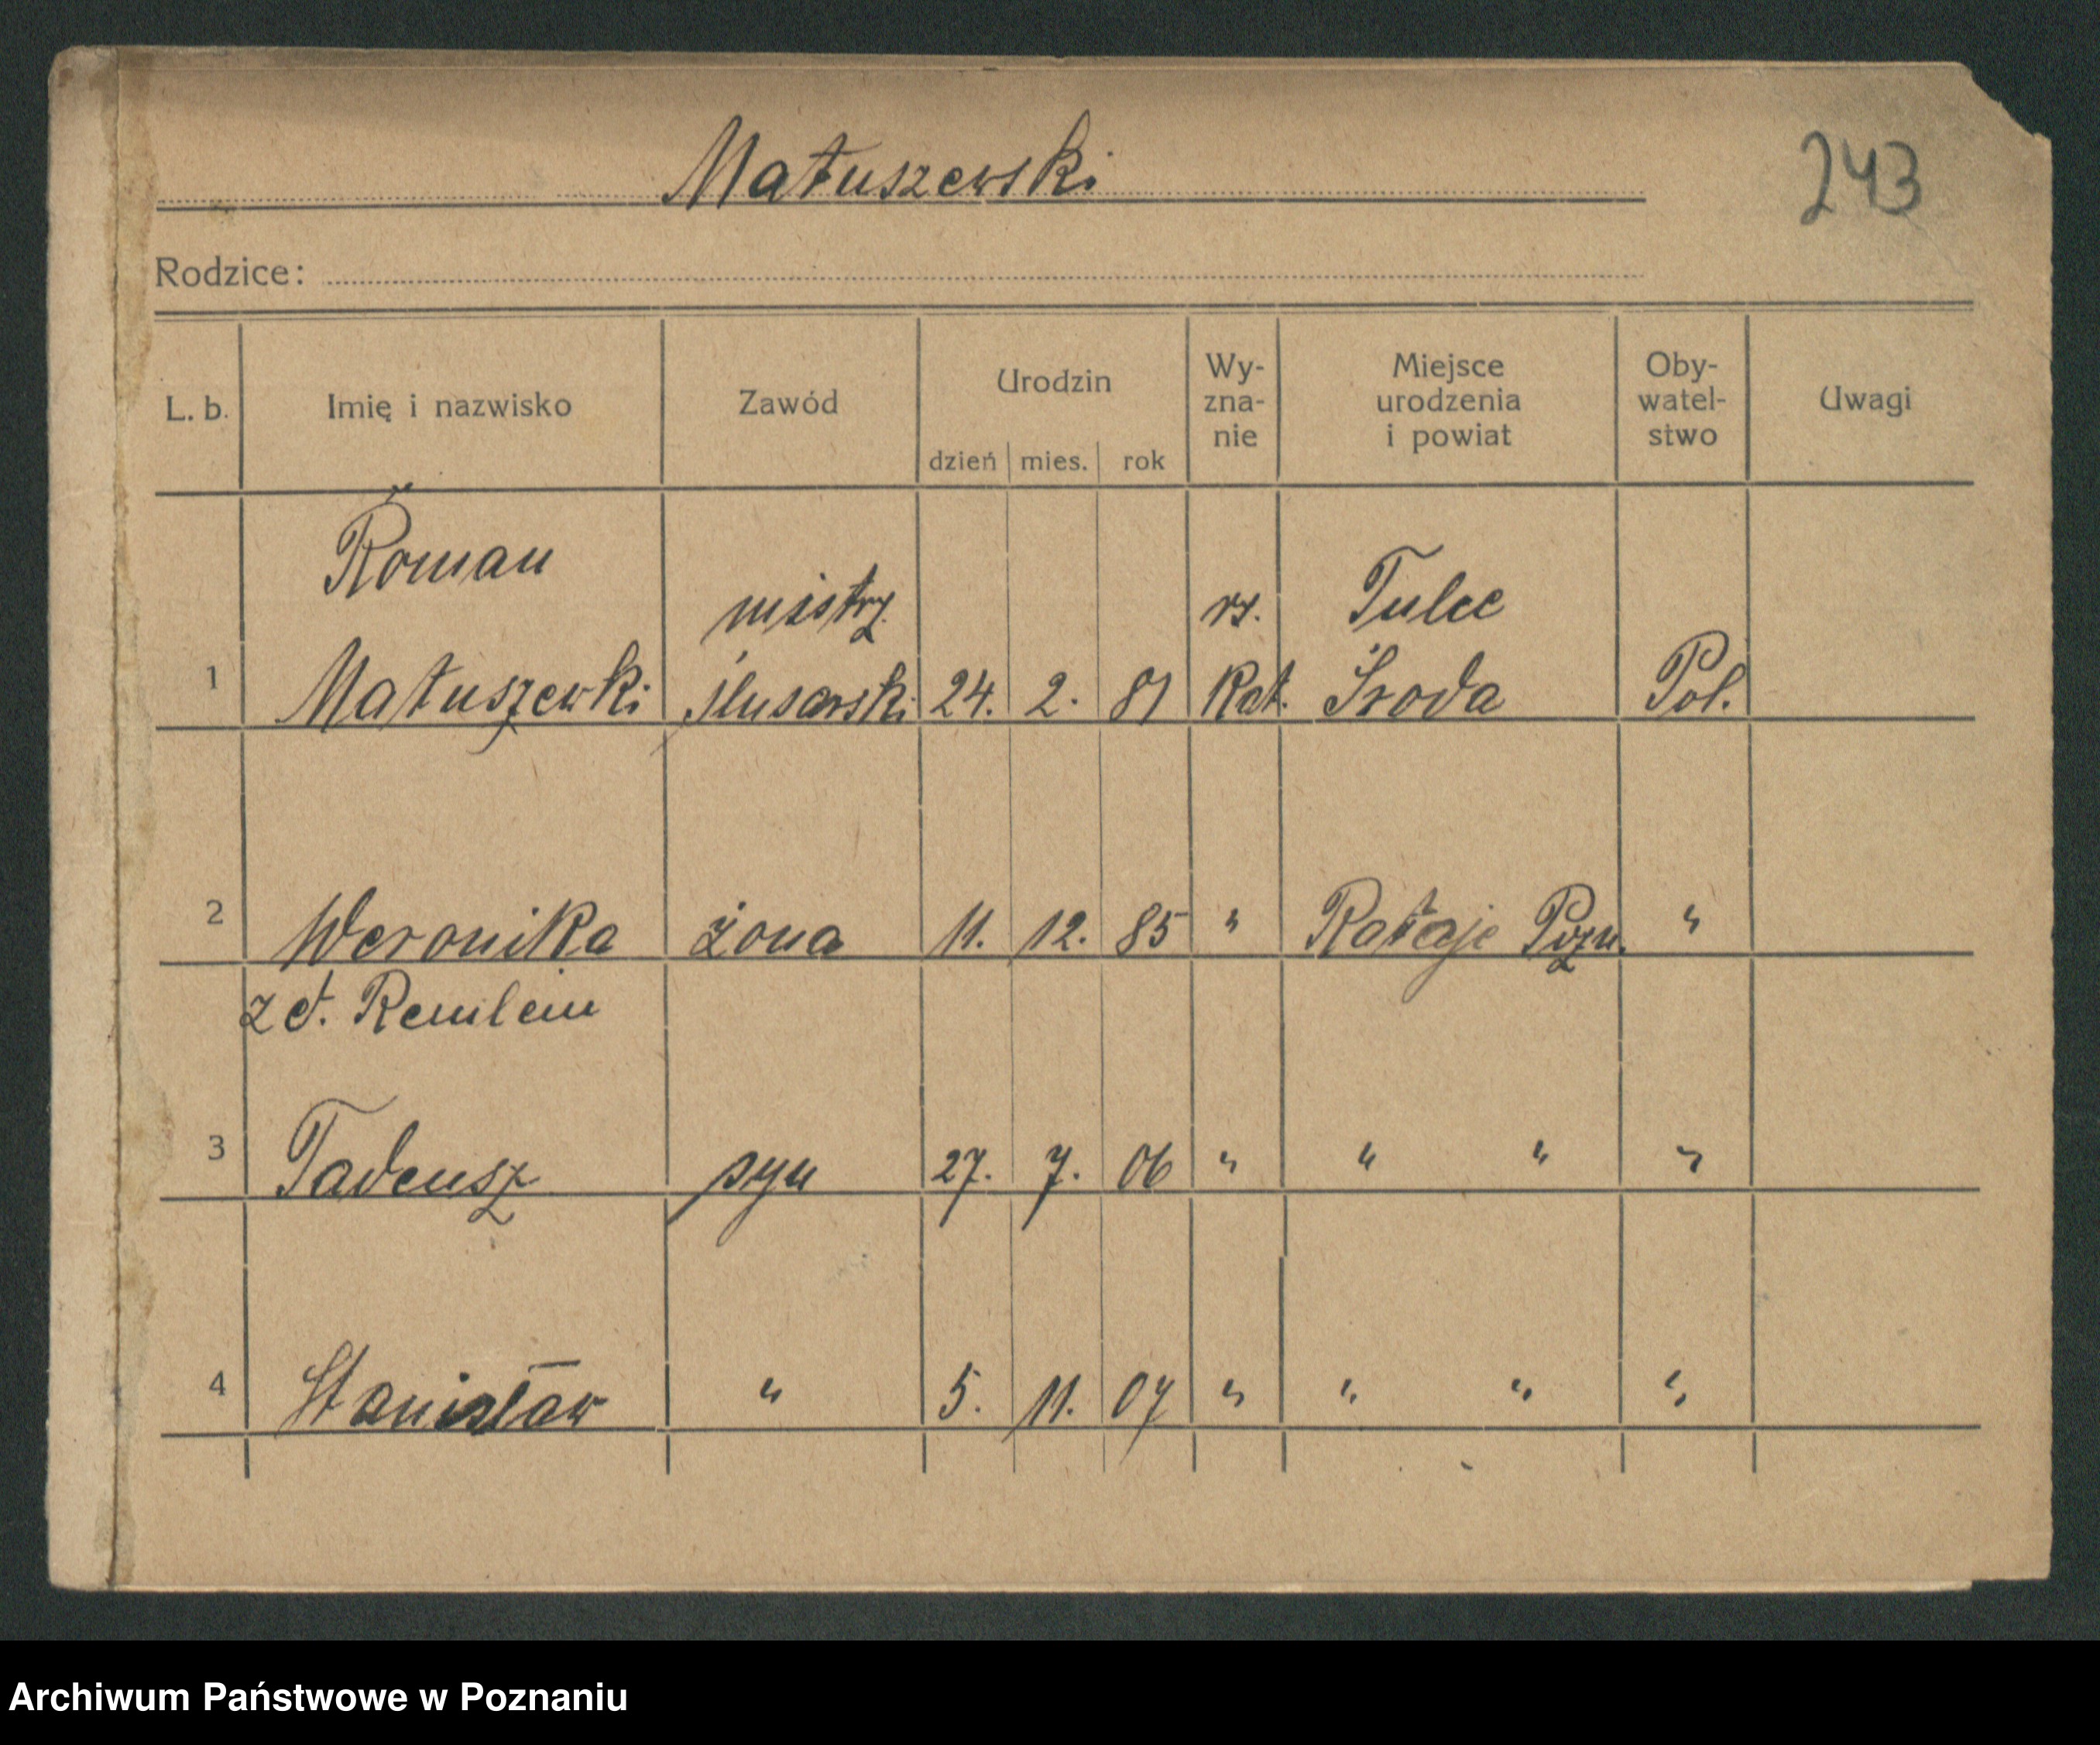 Matuszewski
243
Rodzice:
L. b. Imię i nazwisko Zawód Urodzin dzień mies. rok Wy-zna-nie Miejsce urodzenia i powiat Oby-watel-stwo Uwagi
Roman mistrz rz. Tulce
1 Matuszewki ślusarski 24. 2. 81 Kat. Środa Pol.
2 Weronika żona 11. 12. 85 " Rataje Pozn. "
z d. Remlein
3 Tadeusz syn 27. 7. 06 " " " "
4 Stanisław " 5. 11. 07 " " " "
Archiwum Państwowe w Poznaniu